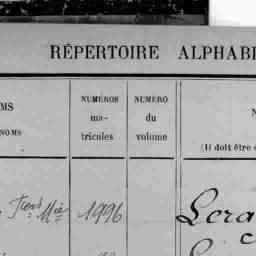 RÉPERTOIRE ALPHABE
MS
NOMS
NUMÉROS
ma-
tricules
NUMÉRO
du
volume
N
(Il doit être
1996
Lera